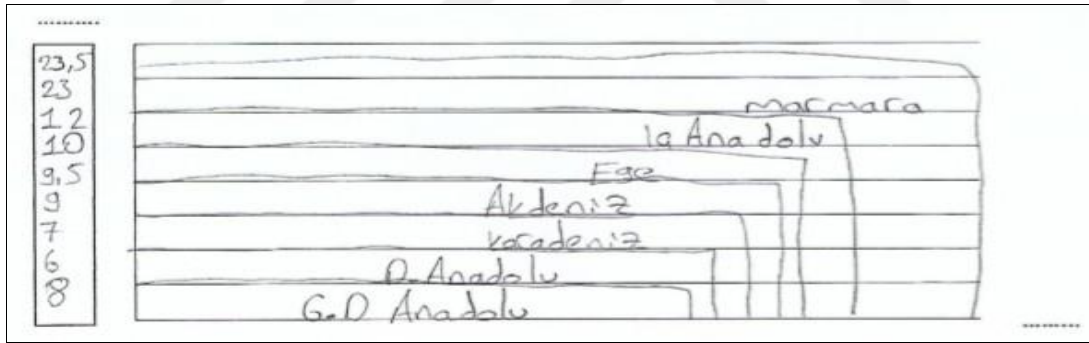 23,5
23
12
10
9,5
9
7
6
8
marmara
İç Anadolu
Ege
Akdeniz
Karadeniz
D. Anadolu
G.D Anadolu